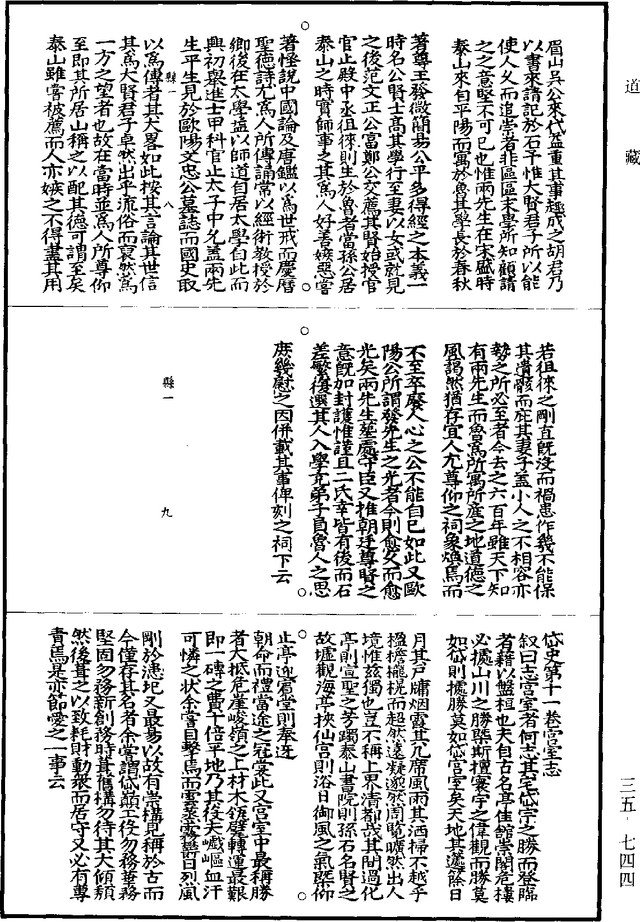 道藏
眉山吳公來代益重其事趣成之胡君乃
以書來請記於石予惟大賢君子所以能
使人久而追崇者非區區末學所知顧請
之之意堅不可已也惟兩先生在宋盛時
泰山來自平陽而寓於魯其學長於春秋
著尊王發微簡易公平多得經之本義一
時名公賢士高其學行至妻以女或就見
之後范文正公富鄭公交薦其賢始授官
官止殿中丞徂徠則生於魯者當孫公居
泰山之時實師事之其爲人好善嫉惡嘗
著怪說中國論及唐鑑以爲世戒而慶曆
聖德詩尤爲人所傳誦常以經術教授於
鄉後在太學益以師道自居太學自此而
興初舉進士甲科官止太子中允蓋兩先
生平生見於歐陽文忠公墓誌而國史取
縣一
八
以爲傳者其大畧如此按其言論其世信
其爲大賢君子卓然出乎流俗而裒然爲
一方之望者也故在當時並爲人所尊仰
至即其所居山稱之以配其德可謂至矣
泰山雖嘗被薦而人亦嫉之不得盡其用
若徂徠之剛直旣沒而禍患作幾不能保
其遺骸而庇其妻子蓋小人之不相容亦
勢之所必至者今去之六百年雖天下知
有兩先生而魯爲所寓所產之地道德之
風藹然猶存宜人尤尊仰之祠象煥焉而
不至卒廢人心之公不能自已如此又歐
陽公所謂發先生之光者今則愈久而愈
光矣兩先生墓處守臣又推朝廷尊賢之
意旣加封護惟謹且二氏幸皆有後而石
差繁復選其人入學充弟子員魯人之思
庶幾慰之因併載其事俾刻之祠下云
縣一
九
岱史第十一卷宮室志
叙曰志宮室者何志其宅岱宇之勝而登臨
者藉以盤桓也夫自古名亭佳館崇閣危樓
必據山川之勝槩斯擅寰宇之偉觀而勝莫
如岱則據勝莫如岱宮室矣天地其蘧餘日
月其戶牖烟雲其几席風雨其洒掃不越乎
楹檐櫳梘而超然遠凝邈然周覽曠然出人
境惟玆獨也豈不稱上界清都哉其間過化
亭則宣聖之芳躅泰山書院則孫石名賢之
故墟觀海亭挾仙宮則浴日御風之氣槩仰
止亭迎賔堂則奉迓
朝命而禮當途之冠裳此又宮室中最稱勝
者大抵危崖峻嶺之上材木瓴甓轉運最艱
即一磚之費十倍平地乃其役夫巇嶇血汗
可憐之狀余嘗目擊焉而雲蒸霧鬱日烈風
剛於漶圮又最易以故有崇構見稱於古而
今僅存其名者余嘗謂岱巔工役勿務華務
堅固勿務新創務時葺舊構勿待其大傾頹
然後葺之以致耗財動衆而居守又必有專
責焉是亦節愛之一事云
三五·七四四